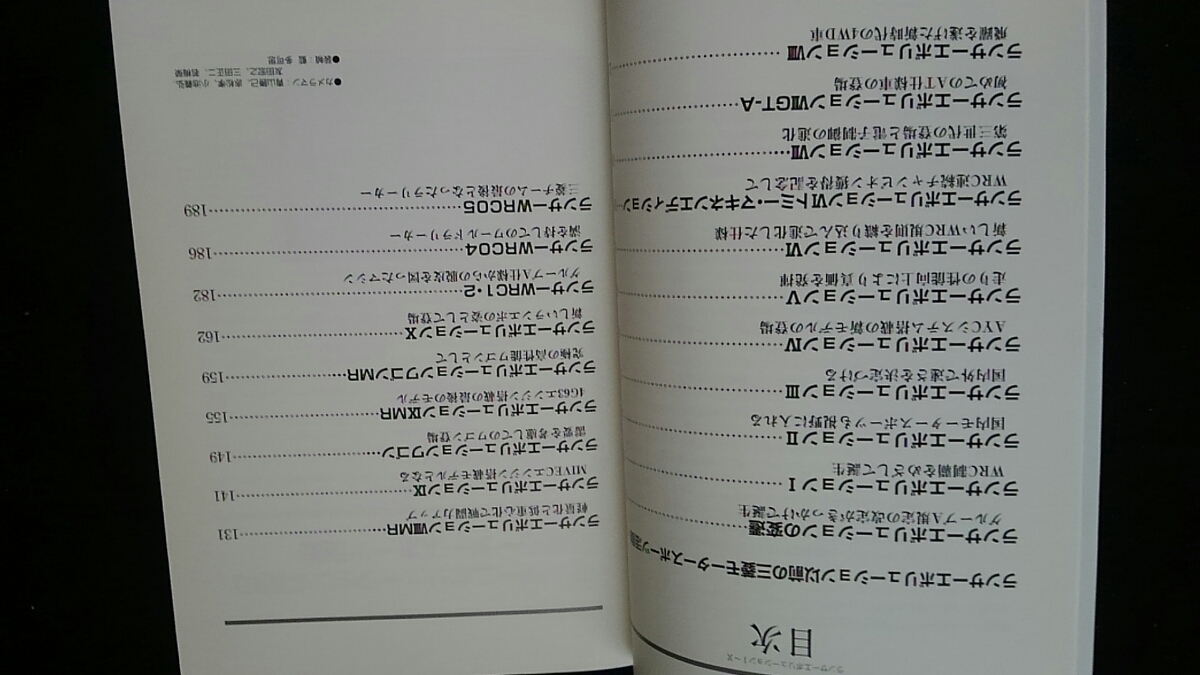 ランサーエボリューションⅠ−Ⅹ
目次
ランサーエボリューション以前の三菱モータースポーツ活動
ランサーエボリューションの変遷
グループA規定の改定がきっかけで誕生
ランサーエボリューションⅠ
WRC制覇をめざして誕生
ランサーエボリューションⅡ
国内モータースポーツも視野に入れる
ランサーエボリューションⅢ
国内外で速さを決定づける
ランサーエボリューションⅣ
AYCシステム搭載の新モデルの登場
ランサーエボリューションⅤ
走りの性能向上により真価を発揮
ランサーエボリューションⅥ
新しいWRC規則を織り込んで進化した仕様
ランサーエボリューションⅥトミー・マキネンエディション
WRC連続チャンピオン獲得を記念して
ランサーエボリューションⅦ
第三世代の登場と電子制御の進化
ランサーエボリューションⅦGT-A
初めてのAT仕様車の登場
ランサーエボリューションⅧ
飛躍を遂げた新時代の4WD車
ランサーエボリューションⅧMR 131
軽量化と低重心化で戦闘力アップ
ランサーエボリューションⅨ 141
MIVECエンジン搭載モデルとなる
ランサーエボリューションワゴン 149
需要を考慮してのワゴン登場
ランサーエボリューションⅨMR 155
4G63エンジン搭載の最後のモデル
ランサーエボリューションワゴンMR 159
究極の高性能ワゴンとして
ランサーエボリューションⅩ 162
新しいランエボの姿として登場
ランサーWRC1・2 182
グループA仕様からの脱皮を図ったマシン
ランサーWRC04 186
満を持してのワールドラリーカー
ランサーWRC05 189
三菱チームの最後となったラリーカー
●カメラマン：青山勝己、赤松孝、小池義弘、
友田宏之、三田正二、
●装幀：藍 多可思